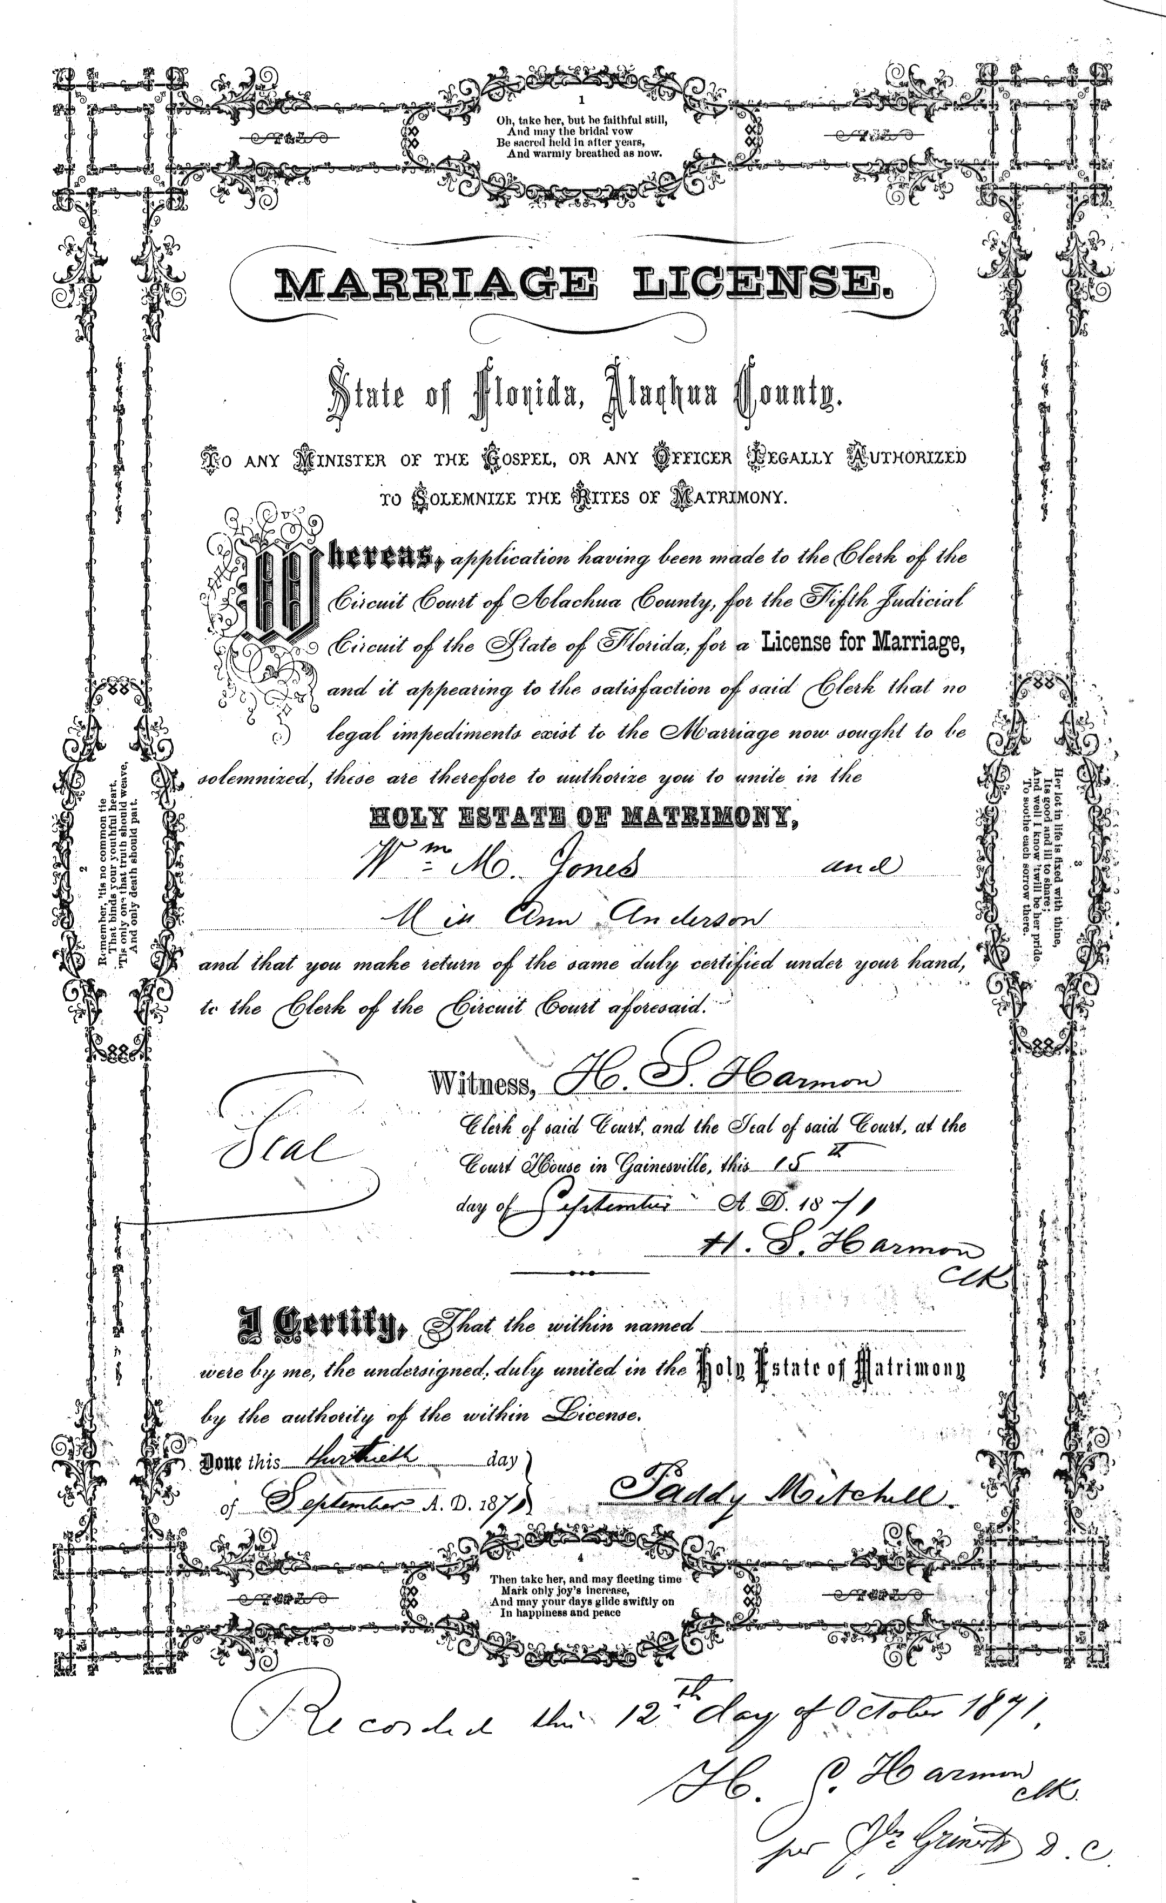 1
Oh, take her, but be faithful still,
And may the bridal vow
Be sacred held in after years,
And warmly breathed as now.
MARRIAGE LICENSE.
State of Florida, Alachua County.
TO ANY MINISTER OF THE GOSPEL, OR ANY OFFICER LEGALLY AUTHORIZED
TO SOLEMNIZE THE RITES OF MATRIMONY.
Whereas, application having been made to the Clerk of the
Circuit Court of Alachua County, for the Fifth Judicial
Circuit of the State of Florida, for a License for Marriage,
and it appearing to the satisfaction of said Clerk that no
legal impediments exist to the Marriage now sought to be
solemnized, these are therefore to authorize you to unite in the
HOLY ESTATE OF MATRIMONY,
Wm M. Jones and
Miss Ann Anderson
and that you make return of the same duly certified under your hand,
to the Clerk of the Circuit Court aforesaid.
2
Remember, 'tis no common tie
That binds your youthful heart.
'Tis only one that truth should weave,
And only death should part.
3
Her lot in life is fixed with thine,
Its good and ill to share;
And well I know 'twill be her pride
To soothe each sorrow there.
Witness, H. S. Harmon
Clerk of said Court, and the Seal of said Court, at the
Court House in Gainesville, this 15th
day of September A. D. 1871
H. S. Harmon
Clk
Seal
I Certify, That the within named
were by me, the undersigned, duly united in the Holy Estate of Matrimony
by the authority of the within License.
Done this thirtieth day
of September A. D. 1871
Paddy Mitchell.
4
Then take her, and may fleeting time
Mark only joy's increase,
And may your days glide swiftly on
In happiness and peace
Recorded this 12th day of October 1871.
H. S. Harmon
clk.
per D. C.